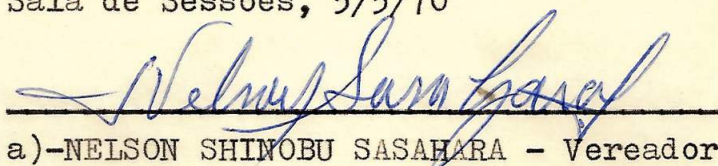 Sala de Sessões, 5/5/70
Nelson Sasahara
a)-NELSON SHINOBU SASAHARA - Vereador